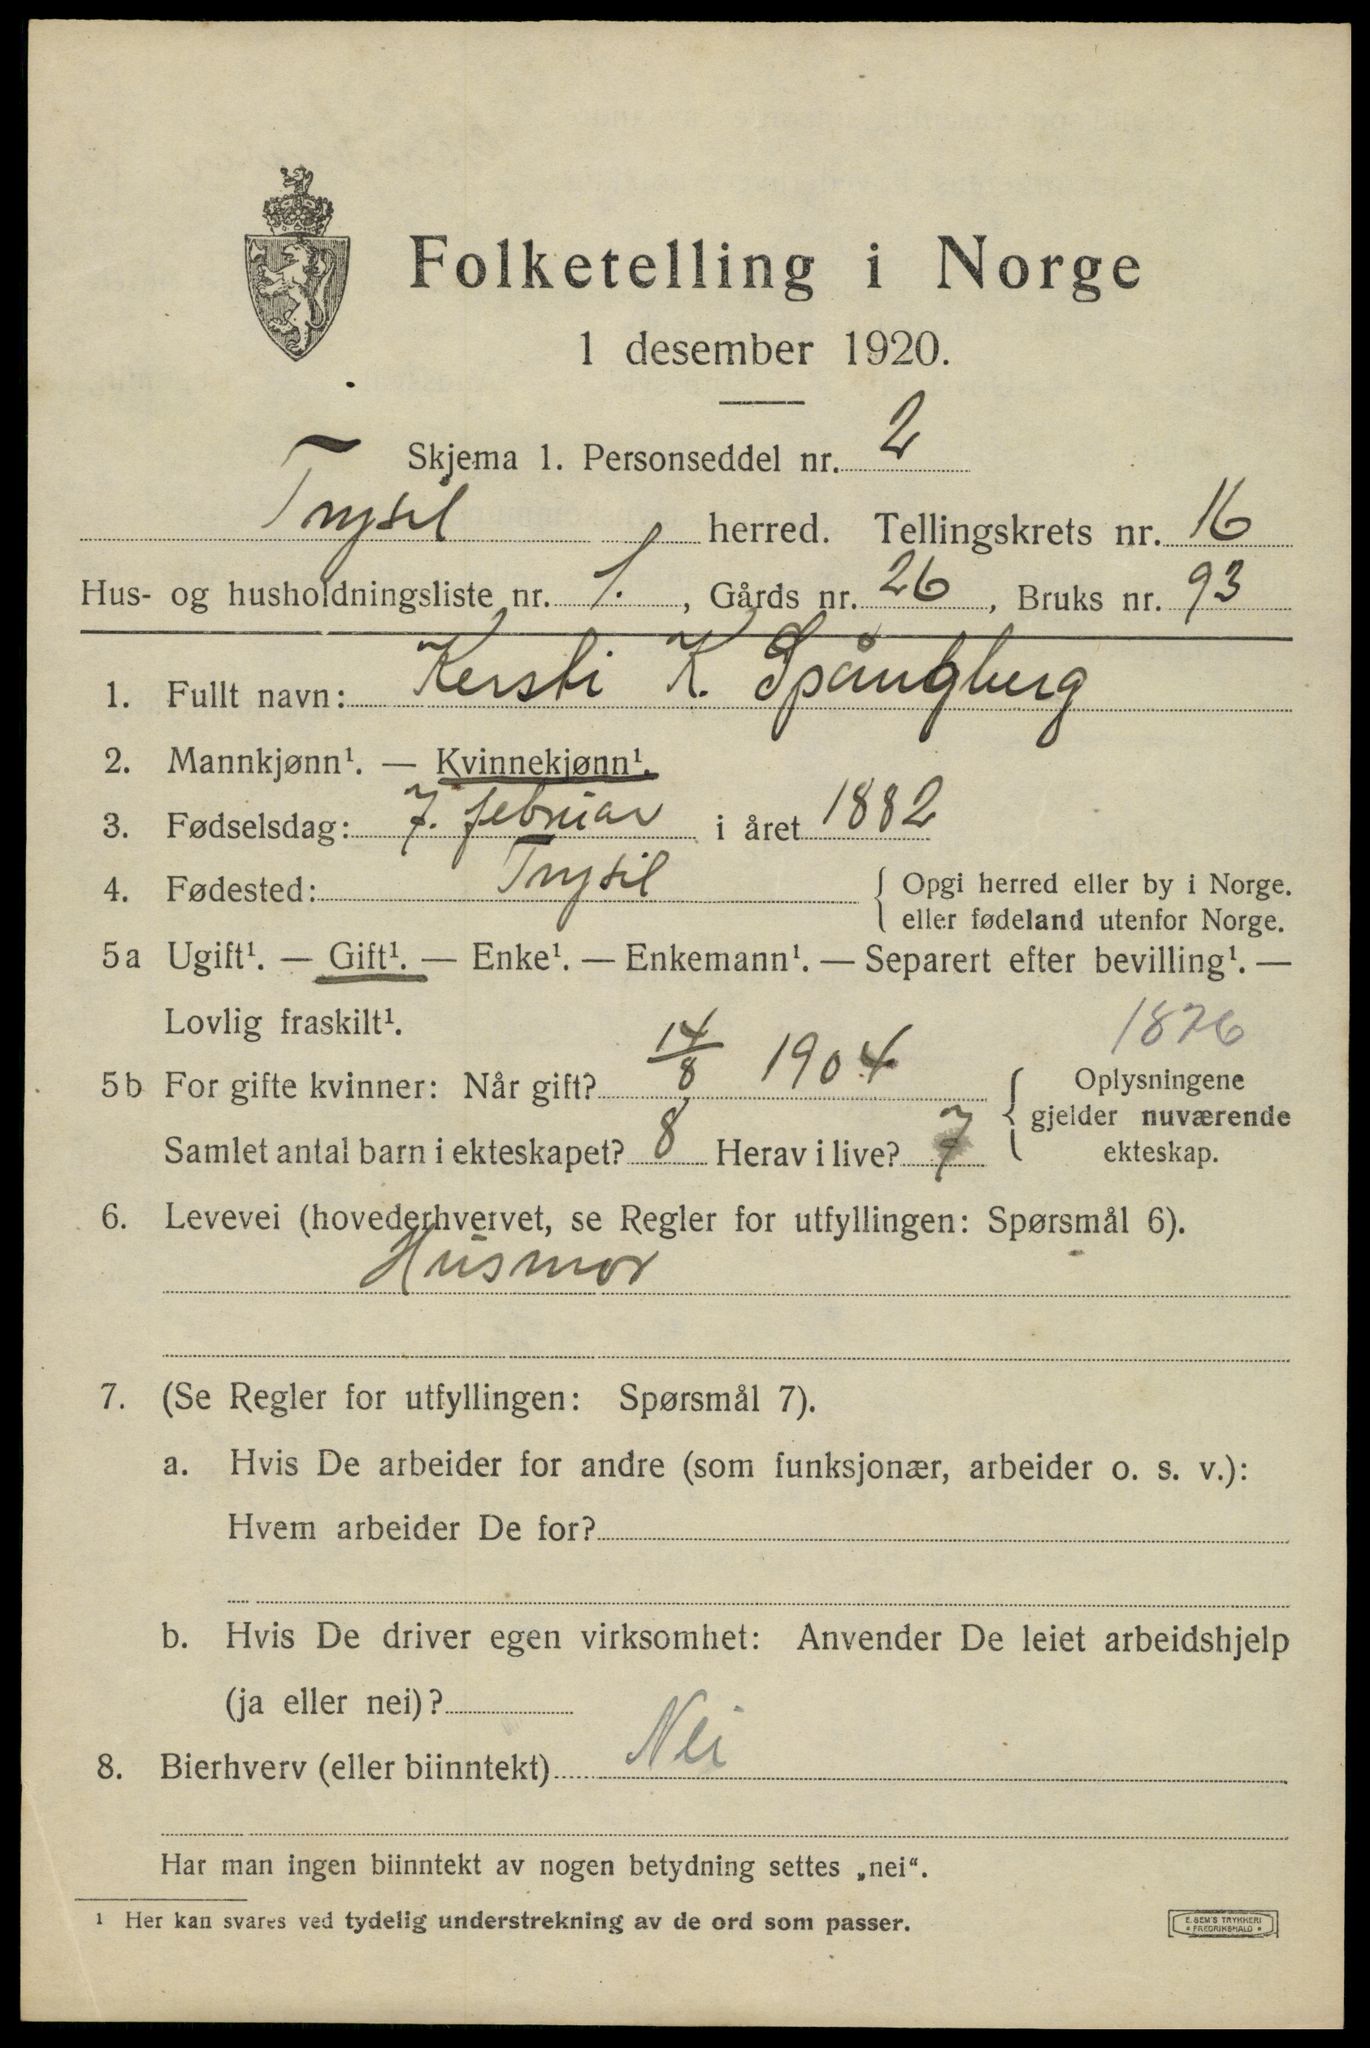 Folketelling i Norge
1 desember 1920.
Skjema 1. Personseddel nr. 2
Trysil herred. Tellingskrets nr. 16
Hus- og husholdningsliste nr. 1., Gårds nr. 26, Bruks nr. 93
1. Fullt navn: Kersti K. Spångberg
2. Mannkjønn¹. — Kvinnekjønn¹.
3. Fødselsdag: 7. februar i året 1882
4. Fødested: Trysil { Opgi herred eller by i Norge.
eller fødeland utenfor Norge.
5a Ugift¹. — Gift¹. — Enke¹. — Enkemann¹. — Separert efter bevilling¹. —
Lovlig fraskilt¹.
1876
5b For gifte kvinner: Når gift? 14/8 1904 { Oplysningene
gjelder nuværende
Samlet antal barn i ekteskapet? 8 Herav i live? 7 ekteskap.
6. Levevei (hovederhvervet, se Regler for utfyllingen: Spørsmål 6).
Husmor
7. (Se Regler for utfyllingen: Spørsmål 7).
a. Hvis De arbeider for andre (som funksjonær, arbeider o. s. v.):
Hvem arbeider De for?
b. Hvis De driver egen virksomhet: Anvender De leiet arbeidshjelp
(ja eller nei)?
8. Bierhverv (eller biinntekt) Nei
Har man ingen biinntekt av nogen betydning settes „nei“.
¹ Her kan svares ved tydelig understrekning av de ord som passer.
E. SEM'S TRYKKERI
* FREDRIKSHALD *